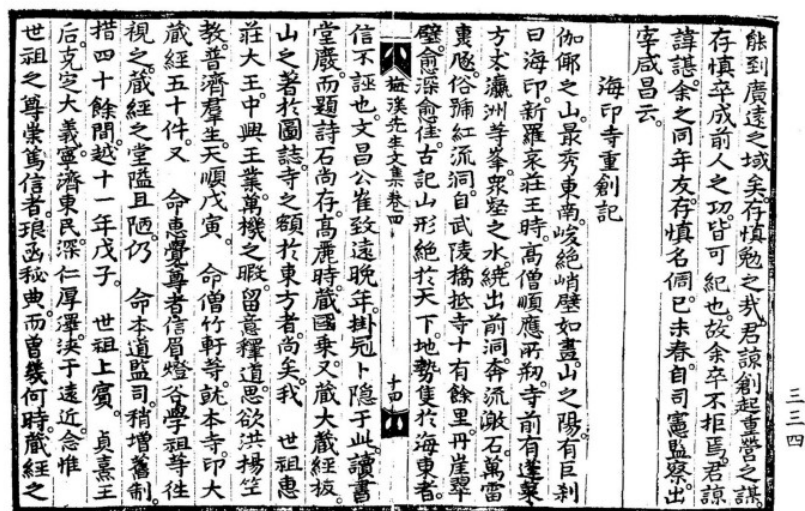 能到廣遠之域矣。存愼勉之哉。君諒創起重營之謀。
存愼卒成前人之功。皆可紀也。故余卒不拒焉。君諒
諱諶。余之同年友。存愼名倜。已未春。自司憲監察。出
宰咸昌云。
海印寺重創記
伽倻之山。最秀東南。峻絶峭壁如畫。山之陽。有巨刹
曰海印。新羅哀莊王時。高僧順應所剏。寺前有蓬萊
方丈瀛洲等峯。衆壑之水。繞出前洞。奔流激石。萬雷
轟豗。俗號紅流洞。自武陵橋抵寺十有餘里。丹崖翠
壁。愈深愈佳。古記山形絶於天下。地勢隻於海東者。
梅溪先生文集卷四
十四
信不誣也。文昌公崔致遠晩年。掛冠卜隱于此。讀書
堂巖而題詩石尙存。高麗時。藏國乘。又藏大藏經板。
山之著於圖誌。寺之額於東方者尙矣。我 世祖惠
莊大王。中興王業。萬機之暇。留意釋道。思欲洪揚竺
敎。普濟羣生。天順戊寅。 命僧竹軒等。就本寺。印大
藏經五十件。又 命惠覺尊者信眉燈谷學祖等往
視之。藏經之堂隘且陋。仍 命本道監司。稍增舊制。
措四十餘間。越十一年戊子。 世祖上賓。 貞熹王
后。克定大義。寧濟東民。深仁厚澤。浹于遠近。念惟
世祖之尊崇篤信者。琅函秘典。而曾幾何時。藏經之
三三四